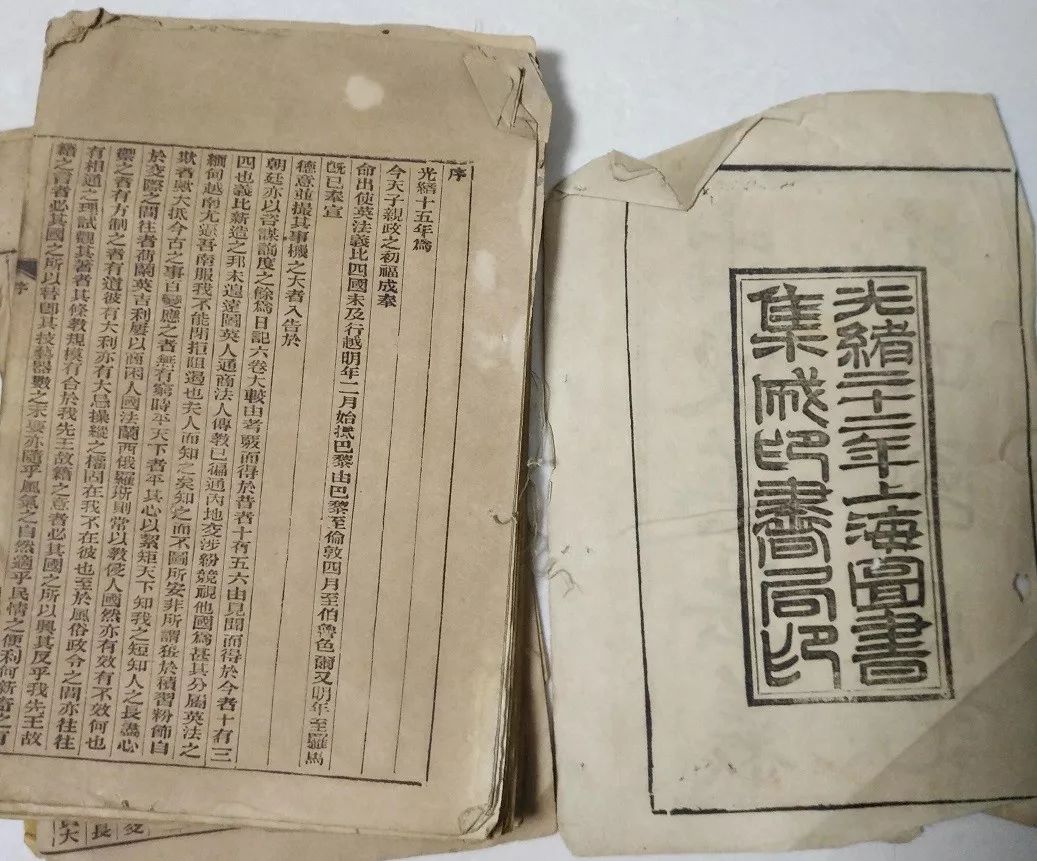 光緒二十二年上海圖書
集成印書局印
序
光緒十五年爲
今天子親政之初福成奉
命出使英法義比四國未及行越明年二月始抵巴黎由巴黎至倫敦四月至伯魯色爾又明年至羅馬
旣已奉宣
德意並撮其事機之大者入告於
朝廷亦以咨謀諏度之餘爲日記六卷大較由考覈而得於昔者十有五六由見聞而得於今者十有三
四也義比新造之邦未遑遠圖英人通商法人傳教已徧通內地交涉紛競視他國爲甚其分屬英法之
緬甸越南尤逼吾南服我不能閉拒阻遏也夫人而知之矣知之而不圖所安非所謂狃於積習粉飾自
欺者歟大抵今古之事百變應之者無有窮時平天下者平其心以絜矩天下知我之短知人之長盡心
於交際之間往者荷蘭英吉利屢以商困人國法蘭西俄羅斯則常以教侵人國然亦有效有不效何也
禦之者有方制之者有道彼有大利亦有大忌操縱之權固在我不在彼也至於風俗政令之間亦往往
有相通之理試觀其著者其條教規模有合於我先王故籍之意者必其國之所以興其反乎我先王故
籍之意者必其國之所以替卽其技藝器數之末要亦隨乎風氣之自然適乎民情之便利何新奇之有
序